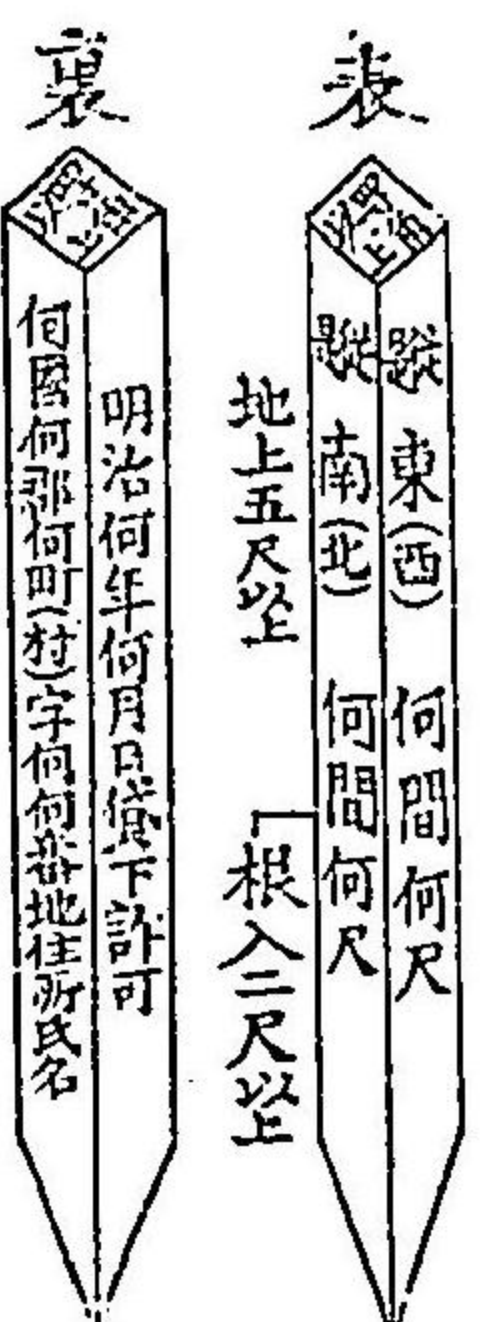 表
東(西) 何間何尺
南(北) 何間何尺
地上五尺以上
根入二尺以上
裏
明治何年何月日貸下許可
何國何郡何町(村)字何何番地住所氏名